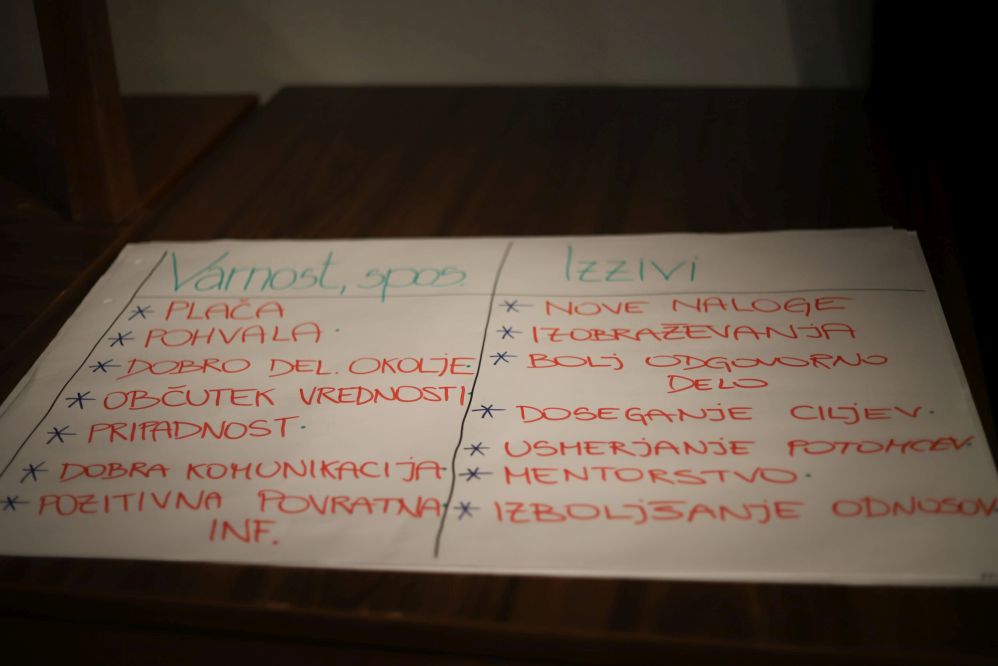 Varnost, spos.
* PLAČA
* POHVALA
* DOBRO DEL. OKOLJE
* OBČUTEK VREDNOSTI
* PRIPADNOST
* DOBRA KOMUNIKACIJA
* POZITIVNA POVRATNA
INF.
Izzivi
* NOVE NALOGE
* IZOBRAŽEVANJA
* BOLJ ODGOVORNO
DELO
* DOSEGANJE CILJEV
* USMERJANJE POTOMCEV
* MENTORSTVO
* IZBOLJŠANJE ODNOSOV